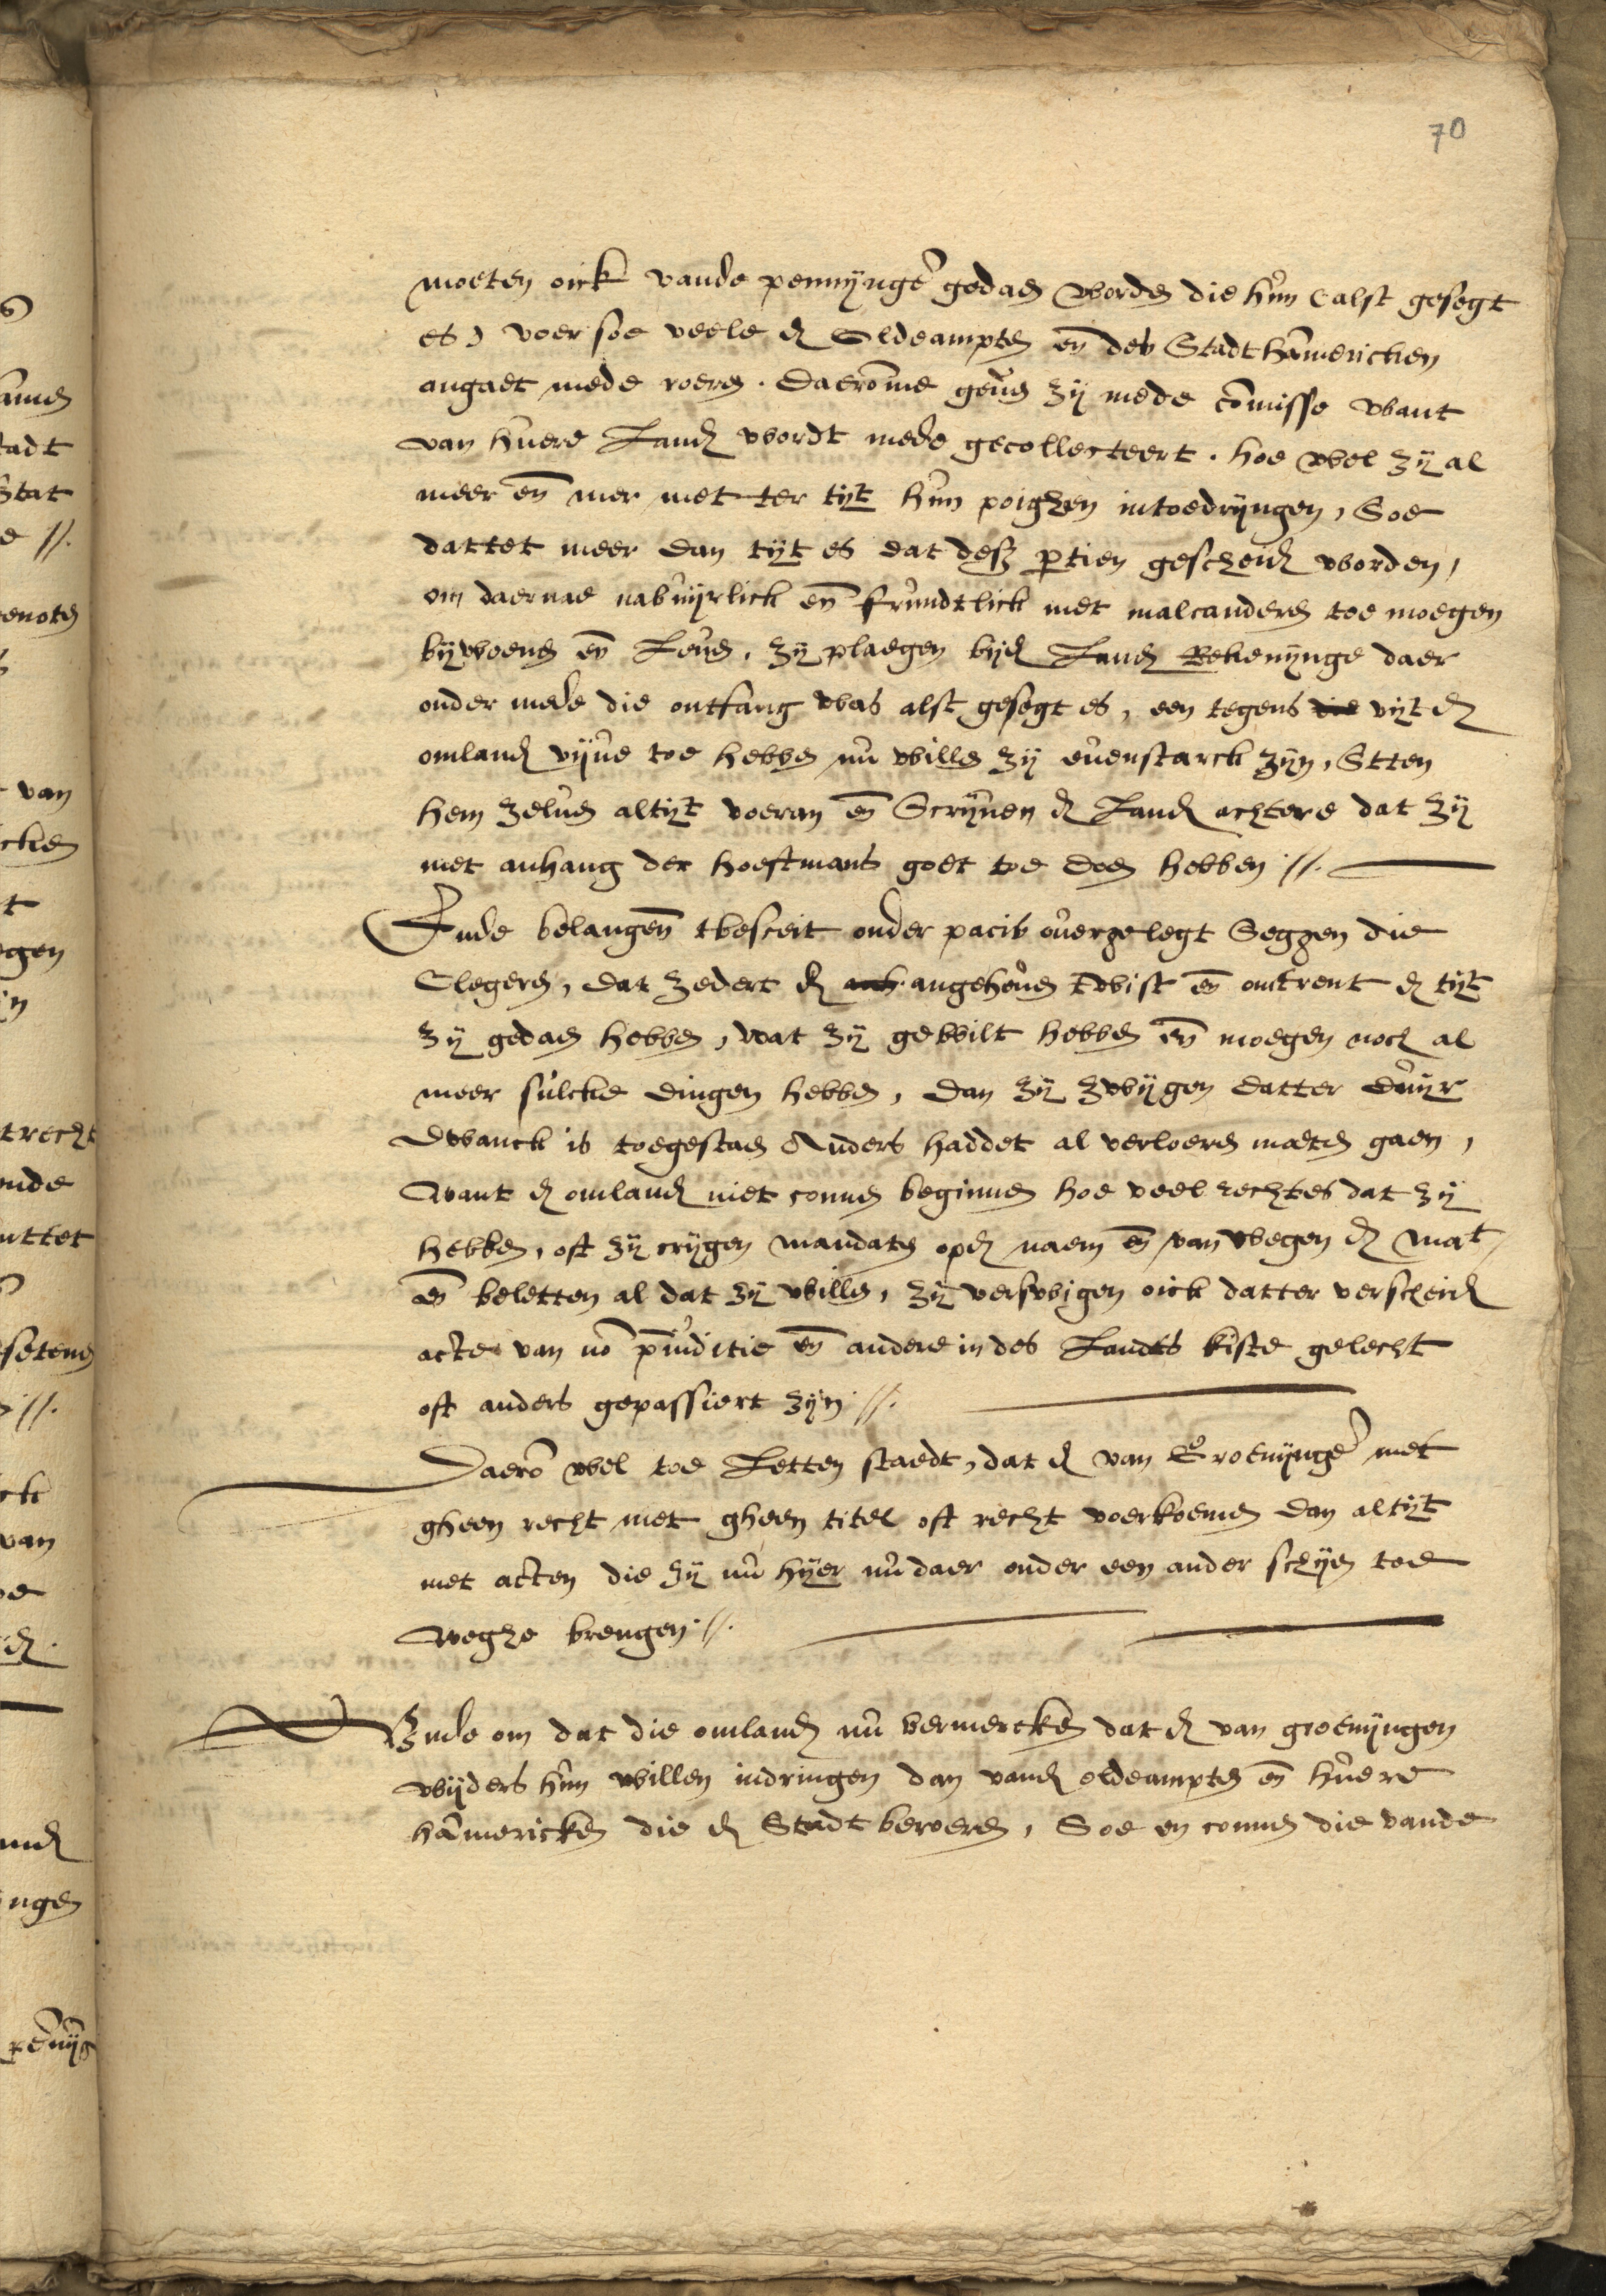 70
moeten oick vande pennijnge gedaen worden die hun (alst gesegt
es) voer soe veele d Oldeampten en des Stadt hamericken
angaet mede roeren. Daeromme geven zij mede comisse want
van huere Land wordt mede gecollecteert. hoe wel zij al
meer en mer met ter tijt hun poighen intoedrijngen, Soe
dattet meer dan tijt es dat dese partien gescheid worden,
om daernae nabuijrlick en frundtlick met malcanderen toe moegen
bijwoenen en Leven. zij plaegen bijd Land Rekenijnge daer
onder mede die ontfang was alst gesegt es, een tegens die vijt d
omland vijve toe hebben nu willen zij evenstarck zijn, Stten
hem zelven altijt voeran en Scrijven d Land achtere dat zij
met anhang der hoeftmans goet toe doen hebben //.
Ende belangen tbesceit onder pacis overgelegt Seggen die
Clegeren, dat zedert d angeheven twist en omtrent d tijt
zij gedaen hebben, wat zij gewilt hebben en moegen noch al
meer sulcke dingen hebben, dan zij zwijgen datter duijr
dwanck is toegestaen Anders haddet al verloeren moeten gaen,
Want d omland niet connen beginnen hoe veel rechtes dat zij
hebben, oft zij crijgen mandaten opd naem en van wegen d mat
en beletten al dat zij willen, zij verswigen oick datter verscheid
acte van no piuditie en andere in des Landts kiste gelecht
oft anders gepassiert zijn //.
Daerom wel toe Letten staedt, dat d van Groenijnge met
gheen recht met gheen titel oft recht voerkoemen dan altijt
met acten die zij nu hijer nu daer onder een ander schijn toe
weghe brengen //.
Ende om dat die omland nu vermercken dat d van groenijngen
wijders hun willen indringen dan vand oldeampten en huere
hamericken die d Stadt beroeren, Soe en connen die vande